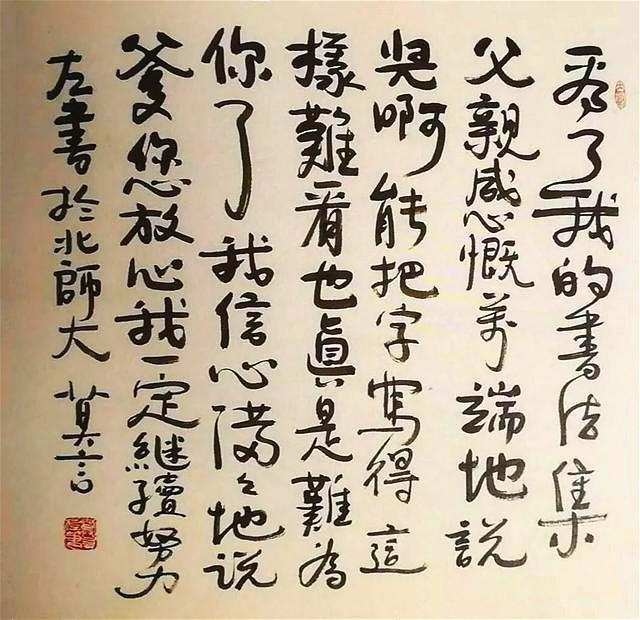 看了我的書法集
父親感慨萬端地說
兒啊能把字寫得這
樣難看也真是難為
你了我信心滿々地说
爹您放心我一定繼續努力
左書於北師大 莫言